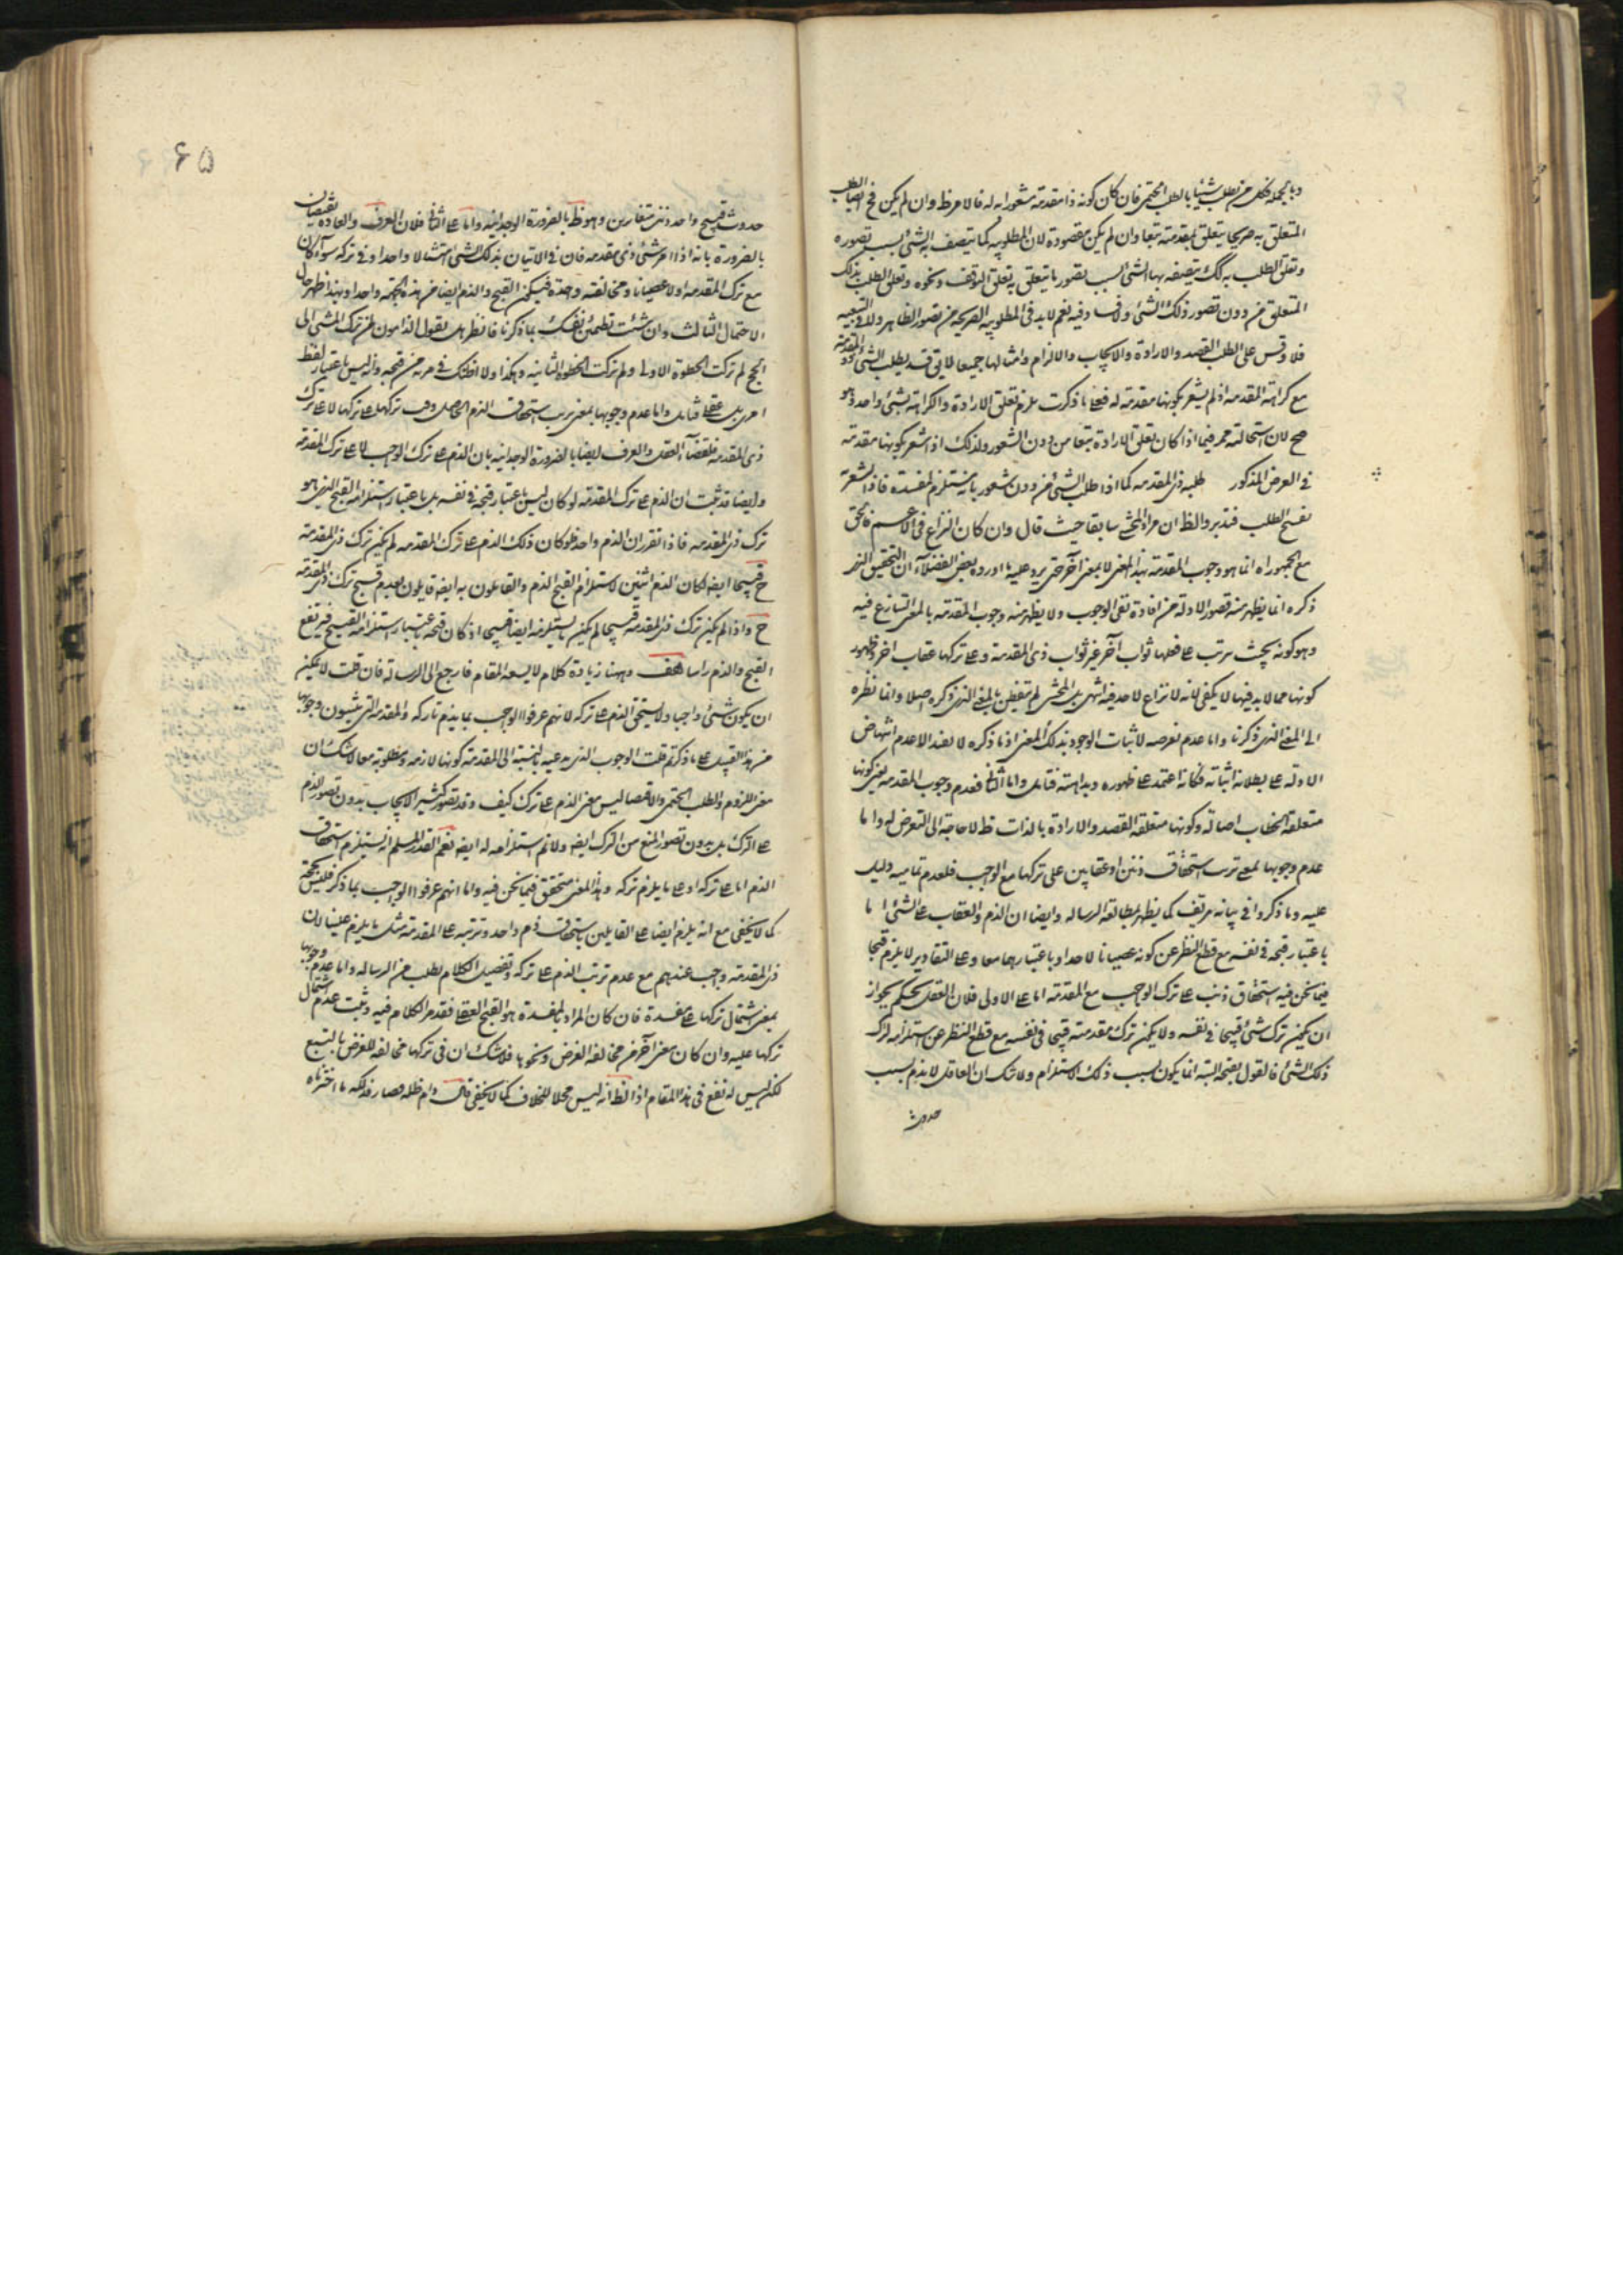 وبالجملة فكل من يطلب شيئا بالطلب الحتمي فان كان كونه ذا مقدمة مشعورا به له فالامر ظ وان لم يكن فح ايضا الطلب
المتعلق به صريحا يتعلق بمقدمته تبعا وان لم يكن مقصودة لان المطلوبية كما يتصف به الشئ بسبب تصوره
وتعلق الطلب به كك يتصف بها الشئ بسبب تصور ما يتعلق به تعلق التوقف ونحوه وتعلق الطلب بذلك
المتعلق من دون تصور ذلك الشئ ولا فساد فيه نعم لا بد في المطلوبية الصريحة من تصور الظاهر ولا في التبعية
فلا وقس على الطلب القصد والارادة والايجاب والالزام وامثالها جميعا لا يق قد يطلب الشئ ذو المقدمة
مع كراهة المقدمة اذ لم يشعر بكونها مقدمة له فعلى ما ذكرت يلزم تعلق الارادة والكراهة بشئ واحد وهو
مح لان استحالته فيما اذا كان تعلق الارادة تبعا من دون الشعور ولذلك اذا شعر بكونها مقدمة
في العرض المذكور طلبه ذي المقدمه كما اذا طلب الشئ من دون شعور بانه مستلزم لمفسدة فاذا شعر
نفسخ الطلب فتدبر والظ ان مراد المحشي سابقا حيث قال وان كان النزاع في الاعم فالحق
مع الجمهور اه انما هو وجوب المقدمة بهذا المعنى لا بمعنى آخر حتى يرد عليه ما اورده بعض الفضلاء ان التحقيق الذي
ذكره انما يظهر منه قصور الادلة من افادة نفي الوجوب ولا يظهر منه وجوب المقدمة بالمعنى المتنازع فيه
وهو كونه بحيث يترتب على فعلها ثواب آخر غير ثواب ذي المقدمة وعلى تركها عقاب اخر وظهور
كونها مما لا بد فيها لا يكفي لانه لا نزاع لاحد فيه انتهى بل المحشي لم يتفطن بالمعنى الذي ذكره اصلا وانما نظره
الى المعنى الذي ذكرنا واما عدم تعرضه لاثبات الوجود بذلك المعنى اذ ما ذكره لا يفيد الا عدم انتهاض
الادلة على بطلانه اثباته فكانه اعتمد على ظهوره وبداهته فتامل واما الثاني فعدم وجوب المقدمة بمعنى كونها
متعلقة الخطاب اصالة وكونها متعلقة القصد والارادة بالذات فظ لا حاجة الى التعرض له واما
عدم وجوبها بمعنى ترتب استحقاق ذمين او عقابين على تركها مع الواجب فلعدم تمامية دليل
عليه وما ذكروا في بيانه مزيف كما يظهر بمطالعة الرسالة وايضا ان الذم والعقاب على الشئ اما
باعتبار قبحه في نفسه مع قطع النظر عن كونه عصيانا لاحد او باعتبارهما معا وعلى التقادير لا يلزم قبحا
فيما نحن فيه استحقاق ذنب على ترك الواجب مع المقدمة اما على الاولى فلان العقل يحكم بجواز
ان يكون ترك شئ قبيحا في نفسه ولا يكون ترك مقدمته قبيحا في نفسه مع قطع النظر عن استلزامه لترك
ذلك الشئ فالقول بقبحه البتة انما يكون بسبب ذلك الاستلزام ولا شك ان العاقل لا يذم بسبب
حدوث
۶۵
حدوث قبيح واحد ذنبين متغايرين وهو ظ بالضرورة الوجدانية واما على الثاني فلان العرف والعادة يقضيان
بالضرورة بانه اذا امر شئ ذي مقدمه فان في الاتيان بذلك الشئ امتثالا واحدا وفي تركه سواء كان
مع ترك المقدمة او لا عصيانا ومخالفة واحدة فيكون القبيح والذم ايضا من هذه الجهة واحدا وبهذا ظهر حال
الاحتمال الثالث وان شئت تطمئن نفسك بما ذكرنا فانظر هل يقول الذامون لمن ترك المشي الى
الحج لم تركت الخطوة الاولى ولم تركت الخطوة الثانيه وهكذا ولا اظنك في مرية من قبحه وانه ليس باعتبار لفظ
امري بل عقلي فتامل واما عدم وجوبها بمعنى ترتب استحقاق الذم الحاصل وقت تركها على تركها لا على ترك
ذي المقدمه فلقضاء العقل والعرف ايضا بالضرورة الوجدانيه بان الذم على ترك الواجب لا على ترك المقدمة
وايضا قد ثبت ان الذم على ترك المقدمه لو كان ليس باعتبار قبحه في نفسه بل باعتبار استلزامه القبيح الذي هو
ترك ذي المقدمه فاذا تقرر ان الذم واحد فلو كان ذلك الذم على ترك المقدمه لم يكن ترك ذي المقدمة
ح قبيحا ايضا لكان الذم اثنين لاستلزام القبح الذم والقائلون به ايضا قايلون بعدم قبح ترك ذي المقدمه
ح واذا لم يكن ترك ذي المقدمه قبيحا لم يكن ما يستلزمه ايضا قبيحا اذ كان قبحه باعتبار استلزامه القبيح فيرتفع
القبح والذم راسا هف وههنا زيادة كلام لا يسعه المقام فارجع الى الرسالة فان قلت لا يمكن
ان يكون شئ واجبا ولا يستحق الذم على تركه لانهم عرفوا الواجب بما يذم تاركه والمقدمة التي يثبتون وجوبها
من هذا القبيل على ما ذكرتم قلت الوجوب الذي ندعيه بالنسبة الى المقدمة كونها لازمه ومطلوبة معا ولا شك ان
معنى اللزوم والطلب الحتمي والاقتضا ليس معنى الذم على ترك كيف وقد يتصور كثيرا الايجاب بدون تصور الذم
على الترك بل بدون تصور المنع من الترك ايضا ولا نم استلزامه له ايضا نعم القدر المسلم انه يستلزم استحقاق
الذم اما على تركه او على ما يلزم تركه وهذا المعنى متحقق فيما نحن فيه واما انهم عرفوا الواجب بما ذكر فليس بحجة
كما لا يخفى مع انه يلزم ايضا على القايلين باستحقاق ذم واحد وترتبه على المقدمة مثل ما يلزم علينا لان
ذي المقدمه واجب عندهم مع عدم ترتب الذم على تركه وتفصيل الكلام يطلب من الرساله واما عدم وجوبها
بمعنى اشتمال تركها على مفسدة فان كان المراد بالمفسدة هو القبح العقلي فقد مر الكلام فيه وثبت عدم اشتمال
تركها عليه وان كان معنى آخر من مخالفة الغرض ونحوها فلا شك ان في تركها مخالفة للغرض بالتبع
لكن ليس له نفع في هذا المقام اذ الظ انه ليس محلا للخلاف كما لا يخفى قال دام ظله فصار فذلكة ما اخترناه